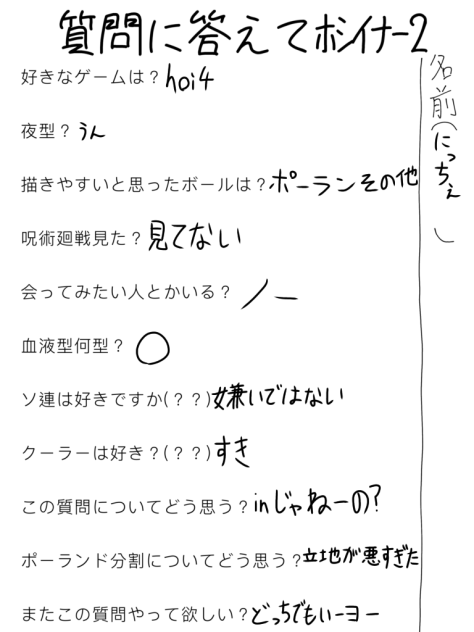 質問に答えてホシイナー2
名前(にっちぇ )
好きなゲームは？hoi4
夜型？うん
描きやすいと思ったボールは？ポーランその他
呪術廻戦見た？見てない
会ってみたい人とかいる？ノー
血液型何型？○
ソ連は好きですか(？？)嫌いではない
クーラーは好き？(？？)すき
この質問についてどう思う？inじゃねーの?
ポーランド分割についてどう思う？立地が悪すぎた
またこの質問やって欲しい？どっちでもいーヨー